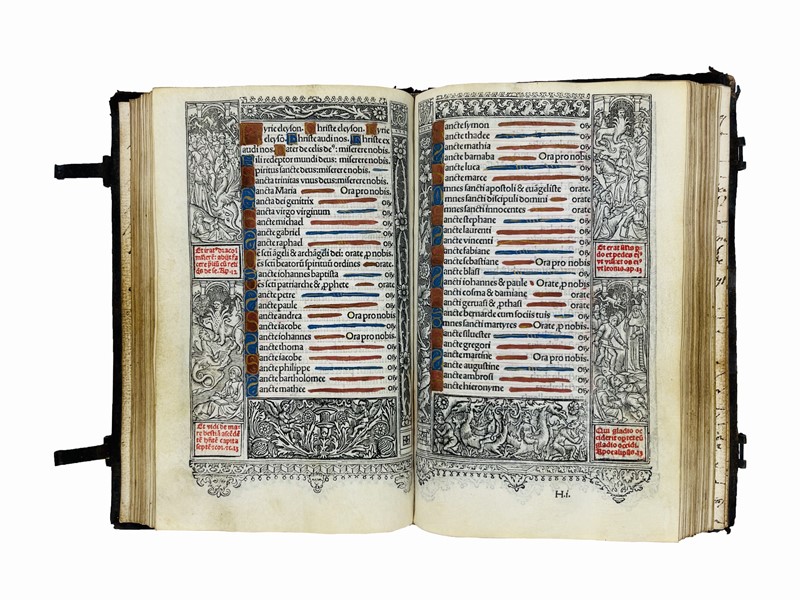 yrie eleyson. hriste eleyson. yrie
eleyson. hriste audi nos. hriste ex
audi nos. ater de celis deˢ: miserere nobis.
ili redemptor mundi deus: miserere nobis.
piritus sancte deus: miserere nobis.
ancta trinitas vnus deus: miserere nobis.
ancta Maria Ora pro nobis.
ancta dei genitrix or
ancta virgo virginum or
ancte michael or
ancte gabriel or
ancte raphael or
es scti āgeli & archāgeli dei: orate, p nobis.
es scti beatorū spirituū ordines orate
ancte iohannes baptista or
es scti patriarche & pphete orate.
ancte petre or
ancte paule or
ancte andrea Ora pro nobis
ancte iacobe or
ancte iohannes Ora pro nobis.
ancte thoma or
ancte iacobe or
ancte philippe or
ancte bartholomee or
ancte mathee or
Et vidi de ma
re bestiā ascēdē
tē hntē capita
septē
ancte symon or
ancte thadee or
ancte mathia or
ancte barnaba Ora pro nobis
ancte luca or
ancte marce or
mnes sancti apostoli & euāgeliste orate.
mnes sancti discipuli domini orate
mnes sancti innocentes orate
ancte stephane or
ancte laurenti or
ancte vincenti or
ancte fabiane or
ancte sebastiane Ora pro nobis.
ancte blasi or
ancti iohannes & paule Orate, p nobis.
ancti cosma & damiane orate
ancti geruasi & pthasi orate
ancte bernarde cum sociis tuis or
mnes sancti martyres Orate, p nobis
ancte siluester or
ancte gregori or
ancte martine Ora pro nobis
ancte augustine or
ancte ambrosi or
ancte hieronyme or
Qui gladio oc
ciderit oportet eū
gladio occidi.
Apocalipsis. 13
H.i.